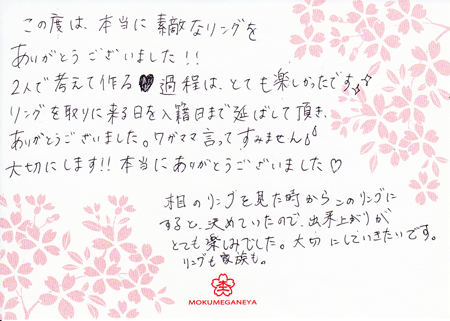 この度は、本当に素敵なリングを
ありがとうございました!!
2人で考えて作る♥過程は、とても楽しかったです♪
リングを取りに来る日を入籍日まで延ばして頂き、
ありがとうございました。ワガママ言ってすみません
大切にします!! 本当にありがとうございました♡
相のリングを見た時からこのリングに
すると、決めていたので、出来上がりが
とても楽しみでした。大切にしていきたいです。
リングも家族も。
MOKUMEGANEYA